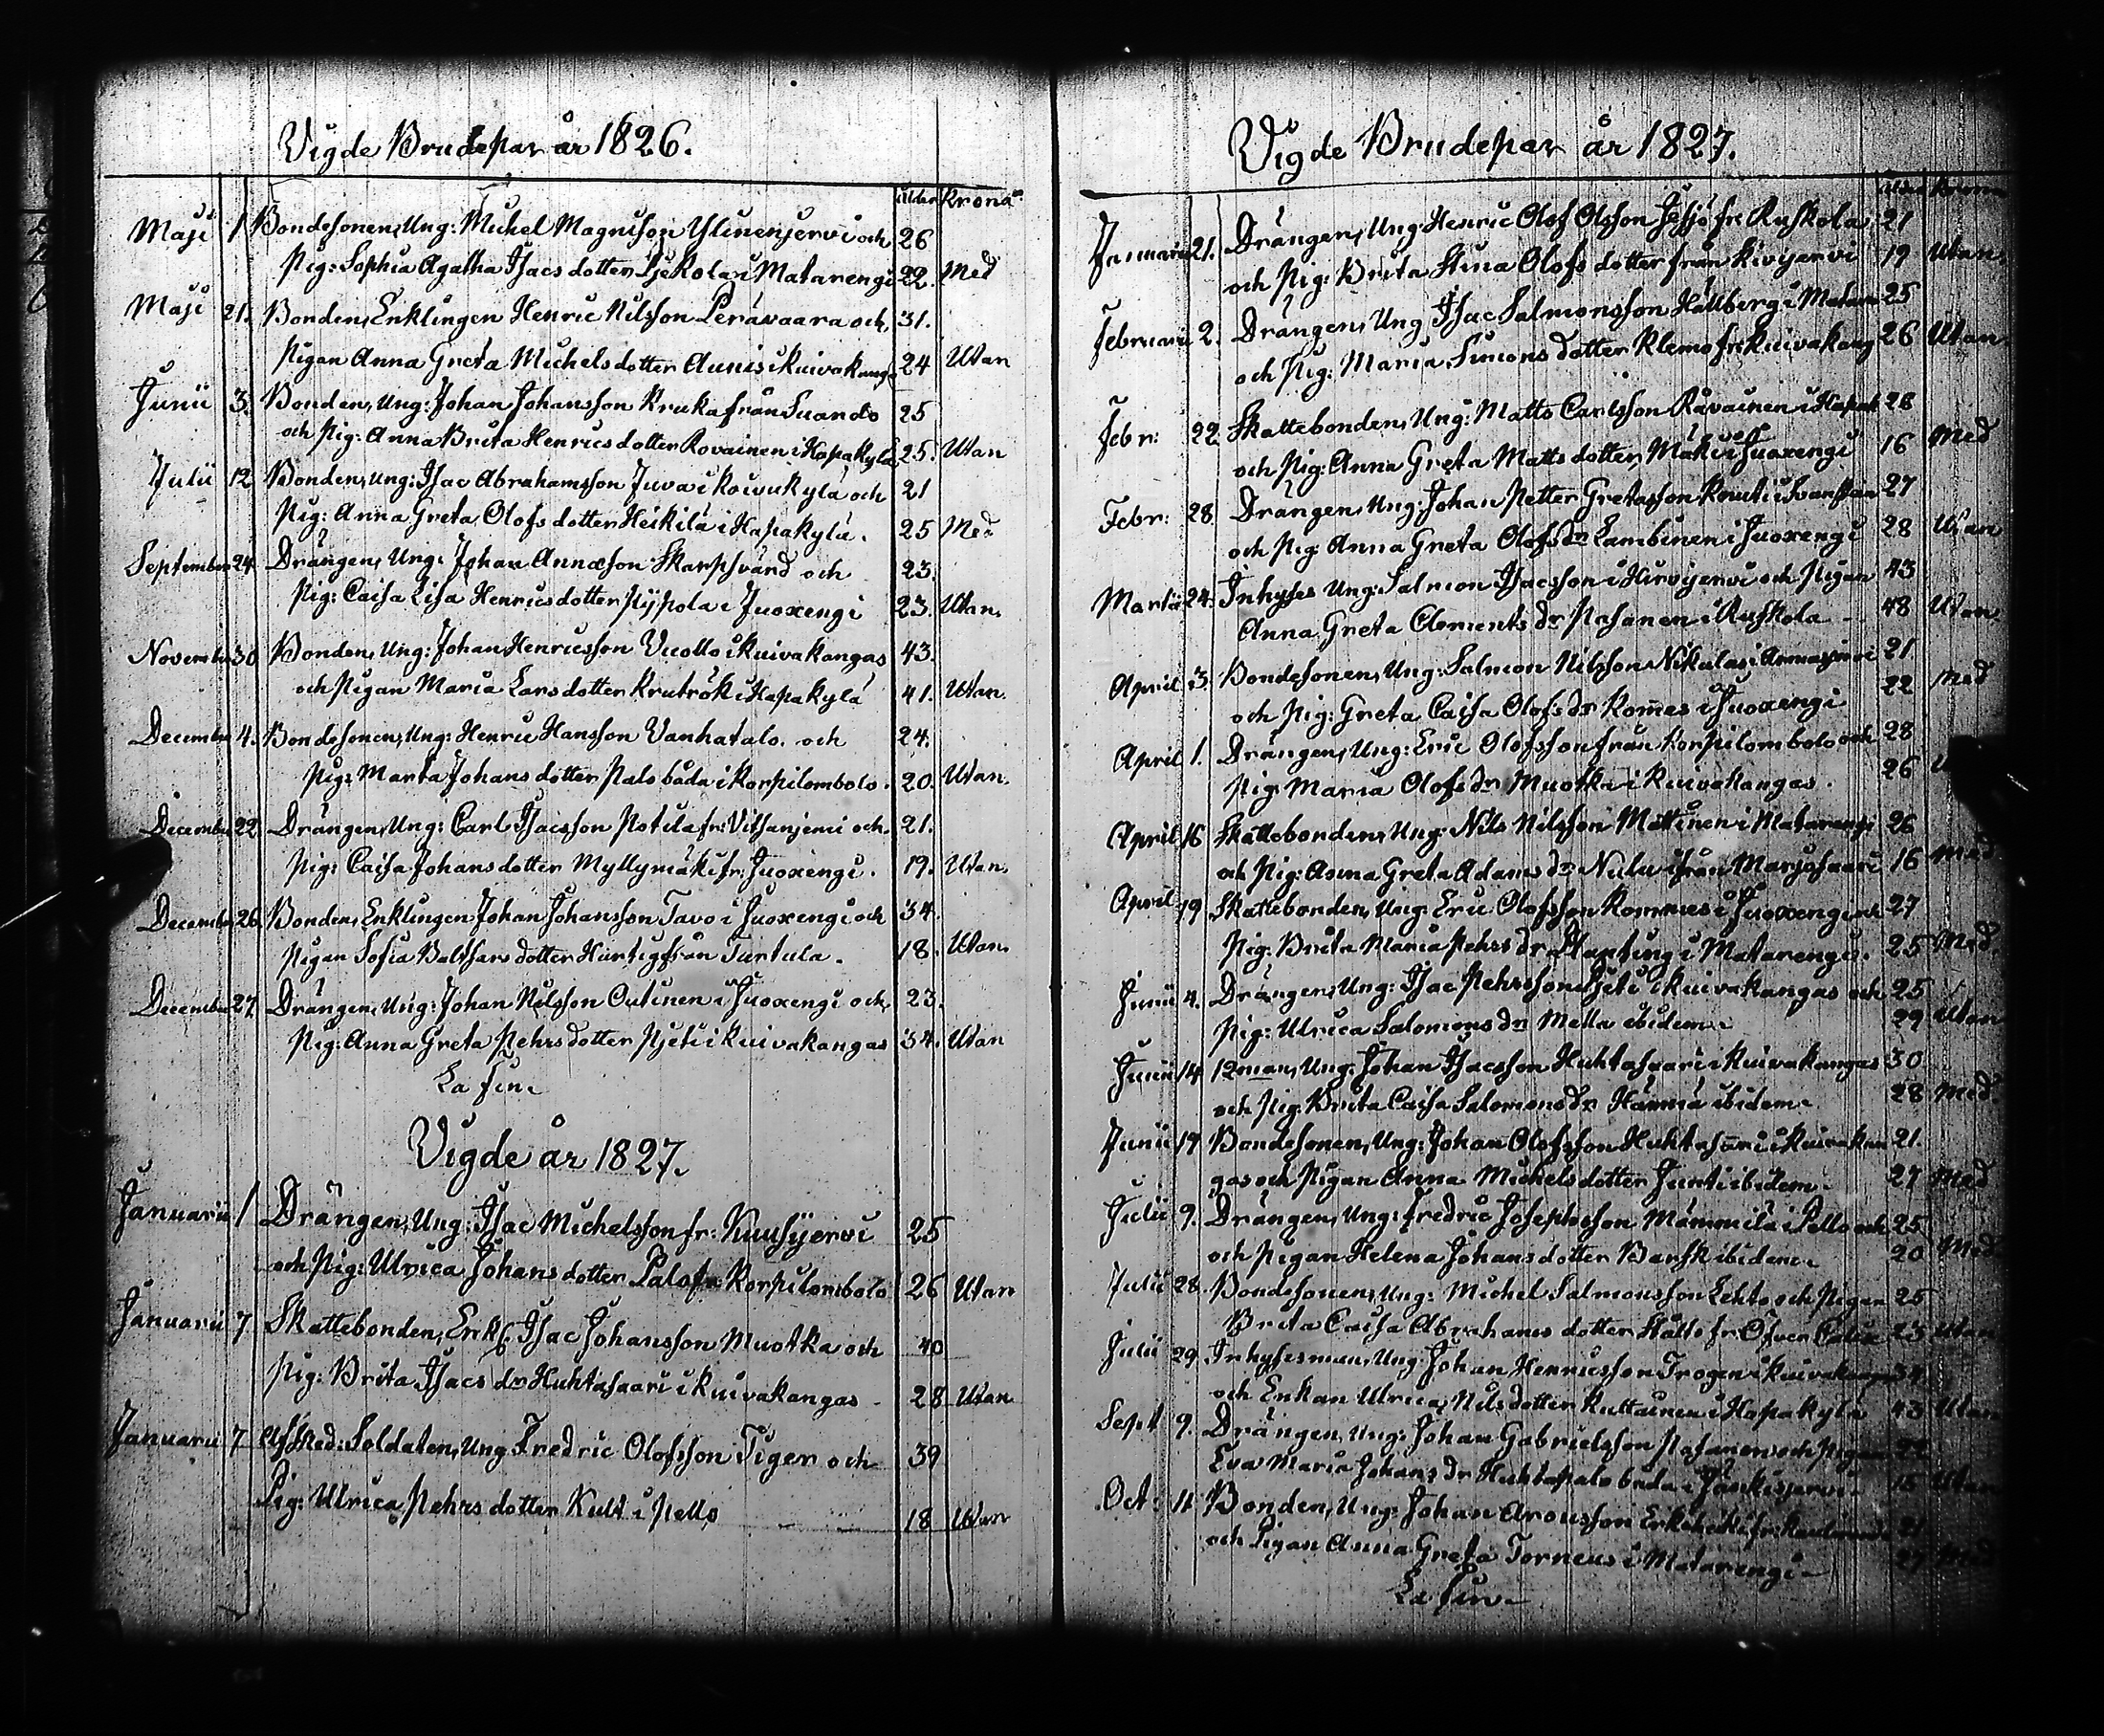 Vigde Brudepar år 1826.
ålder Krona
Maji 1 Bondesonen, Ung: Michel Magnusson Ylinenjervi och 26
Pig: Sophia Agatha Isacs dotter i Matarengi 22. Med
Maji 21. Bonden, Enklingen Henric Nilsson Perävaara och 31.
Pigan Anna Greta Michels dotter Aunis i Kuivakang 24 Utan
Junii 3. Bonden, Ung: Johan Johansson Kruka från Suando 25
och Pig: Anna Brita Henrics dotter Rovainen i Hapakylä 25. Utan
Julii 12 Bonden, Ung: Isac Abrahamsson Juva i Koivukylä och 21
Pig: Anna Greta Olofs dotter Heikilä i Hapakylä. 25 Med
September 24. Drängen, Ung: Johan Annæson Skarpsvärd och 23.
Pig: Caisa Lisa Henrics dotter Pypola i Juoxengi 23. Utan.
November 30 Bonden, Ung: Johan Henricsson Vuollo i Kuivakangas 43.
och Pigan Maria Lars dotter Krutrök i Hapakylä 41. Utan.
December 4. Bondesonen, Ung: Henric Hansson Vanhatalo. och 24.
Pig: Marta Johans dotter Palo båda i Korpilombolo. 20. Utan.
December 22. Drängen, Ung: Carl Isacsson Potila fr: och 21.
Pig: Caisa Johans dotter Myllymäki fr: Juoxengi. 19. Utan.
December 26. Bonden, Enklingen Johan Johansson Tavo i Juoxengi och 34.
Pigan Sofia Balthsars dotter Hurtig från Turtula. 18. Utan.
December 27. Drängen, Ung: Johan Nilsson Outinen i Juoxengi och 23.
Pig: Anna Greta Pehrs dotter Pjeti i Kuivakangas 34. Utan
La fin.
Vigde år 1827.
Januarii 1 Drängen, Ung: Isac Michelsson fr: Kuusijervi 25
och Pig: Ulrica Johans dotter Palo fr Korpilombolo 26 Utan
Januarii 7 Skattebonden, Enkl: Isac Johansson Muotka och 40
Pig: Brita Isacs dr Huhtasaari i Kuivakangas 28 Utan
Januarii 7 Afsked: Soldaten, Ung Fredric Olofsson Tiger och 39
Pig: Ulrica Pehrs dotter Kult i Pello 18 Utan
Vigde Brudepar år 1827.
Januarii 21. Drängen, Ung: Henric Olof Olsson fr: Ruskola 21
och Pig: Brita Stina Olofs dotter från Kivijervi 19 Utan
Februarii 2. Drängen, Ung Isac Salmonsson Hällberg i 25
och Pig: Maria Simons dotter Klemo fr: Kuivakang 26 Utan
Febr: 22 Skattebonden, Ung: Matts Carlsson Råvainen i Hapak 28
och Pig: Anna Greta Matts dotter Mäki i Juoxengi 16 Med
Febr: 28. Drängen, Ung: Johan Petter Gretasson Knuti i Svanstan 27
och Pig: Anna Greta Olofs dr Lambinen i Juoxengi 28 Utan
Martii 24. Inhyses Ung: Salmon Isacsson i Hirvijervi och Pigan 43
Anna Greta Clements dr Pasanen i Ruskola 48 Utan
April 3. Bondesonen, Ung: Salmon Nilsson Nikulas i Armasjervi 21
och Pig: Greta Caisa Olofs dr Komes i Juoxengi 22 Med
April 1. Drängen, Ung: Eric Olofsson från Korpilombolo och 28
Pig: Maria Olofs dr Muotka i Kuivakangas. 26
April 16 Skattebonden, Ung: Nils Nilsson Mattinen i Matarengi 26
och Pig: Anna Greta Adams dr från Marjosaari 16 Med
April 19 Skattebonden, Ung: Eric Olofsson Kommes i Juoxengi och 27
Pig: Brita Maria Pehrs dr Planting i Matarengi. 25 Med.
Junii 4. Drängen, Ung: Isac Pehrsson Pjeti i Kuivakangas och 25
Pig: Ulrica Salomons dr Mella ibidem. 29 Utan
Junii 14 12man, Ung: Johan Isacsson Huhtasaari i Kuivakangas 30
och Pig: Brita Caisa Salomons dr Hännä ibidem. 28 Med.
Junii 17 Bondesonen, Ung: Johan Olofsson Huhtasaari i Kuivakan 21.
gas och Pigan Anna Michels dotter Junti ibidem. 27 Med
Julii 9. Drängen, Ung: Fredric Josephsson Mämmilä i Pello och 25
och Pigan Helena Johans dotter Barsk ibidem. 20 Med
Julii 28. Bondesonen, Ung: Michel Salmonsson Lehto och Pigan 25
Brita Caisa Abrahams dotter fr Öfver 23 Utan
Julii 29. Inhysesman, Ung: Johan Henricsson Trogen i Kuivakangas 34
och Enkan Ulrica Nils dotter Kuttainen i Hapakylä 43 Utan
Sept 9. Drängen, Ung: Johan Gabrielsson Pasanen och Pigan 22
Eva Maria Johans dr Huhtapalo båda i 15 Utan
Oct: 11 Bonden, Ung: Johan Aronsson fr: 21
och Pigan Anna Greta Torneus i Matarengi 27 Med
La fin.